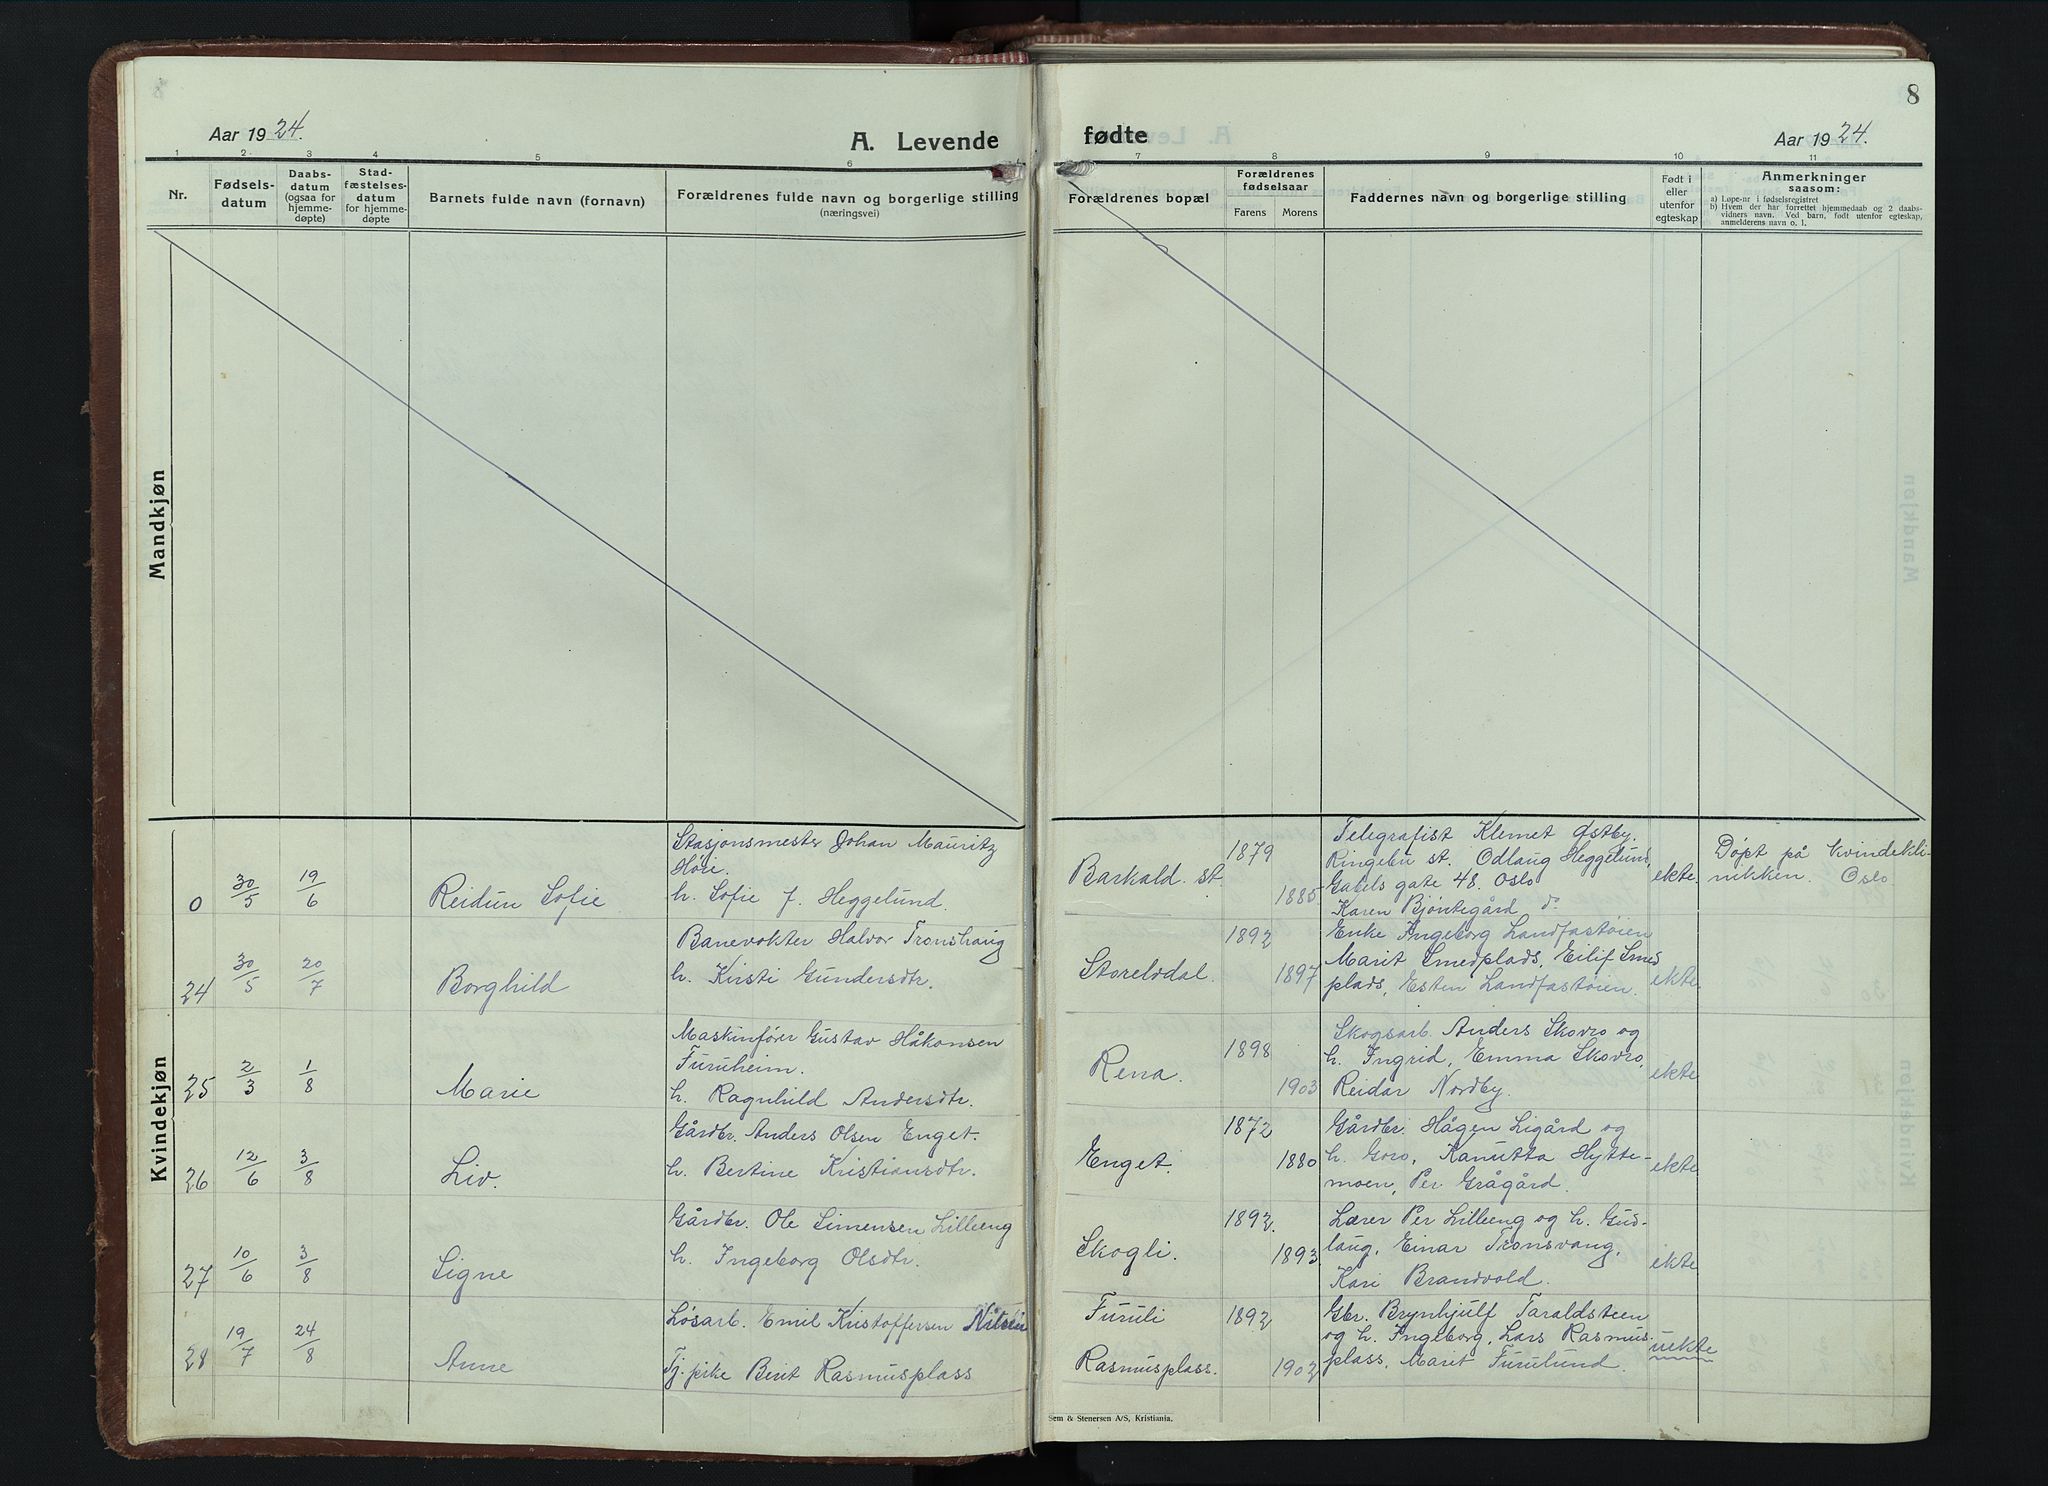 8
Aar 1924.
A. Levende
fødte
Aar 1924.
1 2 3 4 5 6 7 8 9 10 11
Nr.
Fødsels-
datum
Daabs-
datum
(ogsaa for
hjemme-
døpte)
Stad-
fæstelses-
datum
for hjemme-
døpte
Barnets fulde navn (fornavn)
Forældrenes fulde navn og borgerlige stilling
(næringsvei)
Forældrenes bopæl
Forældrenes
fødselsaar
Farens Morens
Faddernes navn og borgerlige stilling
Født i
eller
utenfor
egteskap
Anmerkninger
saasom:
a) Løpe-nr i fødselsregistret
b) Hvem der har forrettet hjemmedaab og 2 daabs-
vidners navn. Ved barn, født utenfor egteskap,
anmelderens navn o. l.
Mandkjøn
Kvindekjøn
0 30/5 19/6 Reidun Sofie
Stasjonsmester Johan Mauritz
Høie.
h. Sofie f. Heggelund.
Barkald. st.
1879
1885
Telegrafist Klemet Østby.
Ringebu st. Odlaug Heggelund,
Gabels gate 48. Oslo
Karen Bjøntegård do
ekte.
Døpt på Kvindekli-
nikken. Oslo.
24 30/5 20/7 Borghild
Banevokter Halvor Tronshaug
h. Kristi Gundersdtr.
Storeldal.
1892
1897
Enke Ingeborg Landfastøien
Marit Smedplads, Eilif Smed
plads, Esten Landfastøien.
ekte
25 2/3 1/8 Marie
Maskinfører Gustav Håkonsen
Furuheim.
h. Ragnhild Andersdtr.
Rena.
1898
1903
Skogsarb. Anders Skovro og
h. Ingrid, Emma Skovro,
Reidar Nordby.
ekte
26 12/6 3/8 Liv.
Gårdbr. Anders Olsen Enget.
h. Bertine Kristiansdtr.
Enget.
1872
1880
Gårdbr. Hågen Ligård og
h. Goro, Kanutta Hytte-
moen, Per Grågård.
ekte
27 10/6 3/8 Signe
Gårdbr. Ole Simensen Lilleeng
h. Ingeborg Olsdtr.
Skogli.
1892.
1893
Lærer Per Lilleeng og h. Gud-
laug, Einar Tronsvang,
Kari Brandvold.
ekte
28 19/7 24/8 Anne
Løsarb. Emil Kristoffersen Nilsen
Tj. pike Berit Rasmusplass
Furuli
Rasmusplass.
1892
1902
Gbr. Brynhjulf Taraldsteen
og h. Ingeborg, Lars Rasmus-
plass, Marit Furulund.
uekte
Sem & Stenersen A/S, Kristiania.